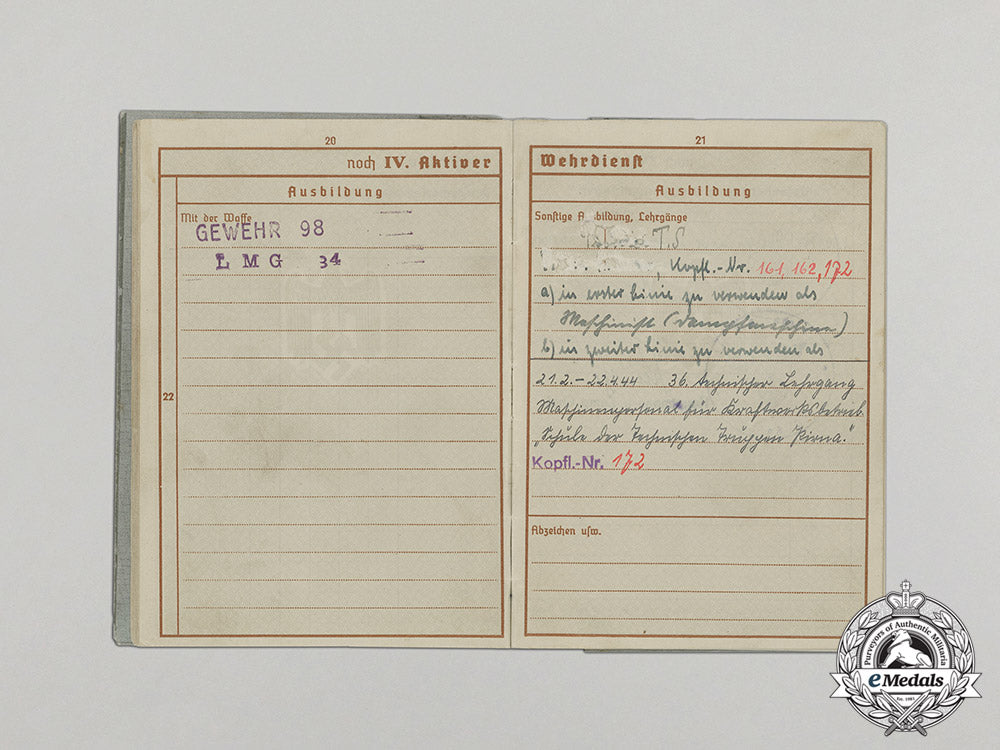 20
noch IV. Aktiver
Ausbildung
Mit der Waffe
GEWEHR 98
L M G 34
22
21
Wehrdienst
Ausbildung
Sonstige Ausbildung, Lehrgänge
T.S
, Kopfl.-Nr. 161, 162, 172
a) in erster Linie zu verwenden als
Maschinist (Dampfmaschine)
b) in zweiter Linie zu verwenden als
21.2.–22.4.44 36. technischer Lehrgang
Maschinenpersonal für Kraftwerksbetrieb
"Schule der Technischen Truppen Pirna."
Kopfl.-Nr. 172
Abzeichen usw.
Purveyors of Authentic Militaria
eMedals
Est. 1983